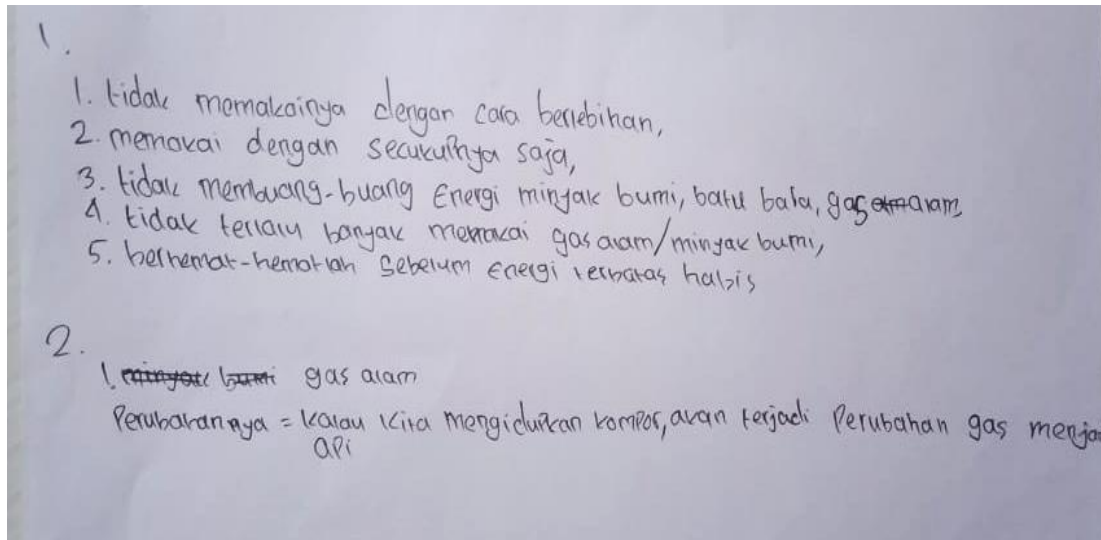 1.
1. tidak memakainya dengan cara berlebihan,
2. memakai dengan secukupnya saja,
3. tidak membuang-buang Energi minyak bumi, batu bara, gas alam,
4. tidak terlalu banyak memakai gas alam/minyak bumi,
5. berhemat-hematlah sebelum Energi terbatas habis
2.
1. minyak bumi gas alam
Perubahannya = kalau kita mengidupkan kompor, akan terjadi Perubahan gas menja
api